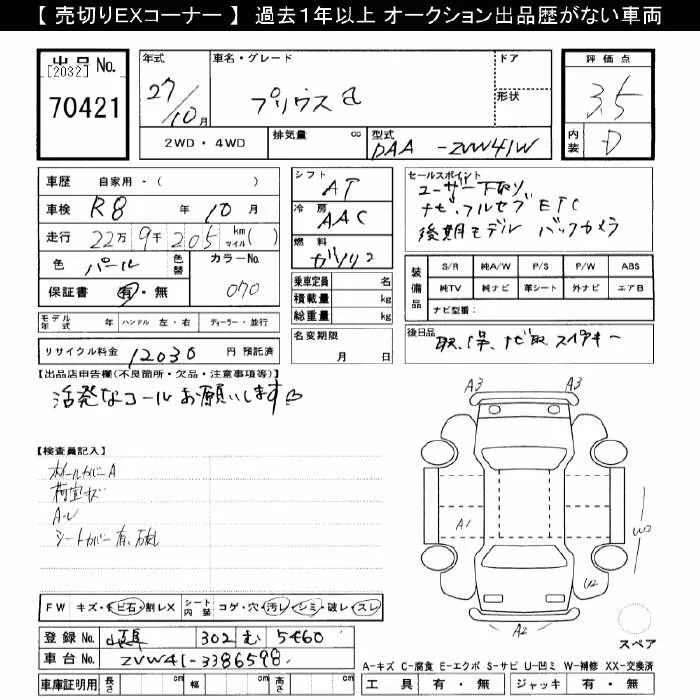 【 売切りEXコーナー 】 過去1年以上 オークション出品歴がない車両
出品 No.
[2032]
70421
年式
27/10月
車名・グレード
プリウスα
ドア
形状
評価点
3.5
内装
D
2WD・4WD
排気量 cc
型式
DAA -ZVW41W
車歴 自家用 -( )
車検 R8 年 10 月
走行 22万 9千 205 km マイル( )
色 パール 色替 カラーNo. 070
保証書 有・無
モデル年式 年 ハンドル 左・右 ディーラー・並行
リサイクル料金 12030 円 預託済
シフト
AT
冷房
AAC
燃料
ガソリン
乗車定員 名
積載量 kg
総重量 kg
名変期限
月 日
セールスポイント
ユーザー下取り
ナビ.フルセグ ETC
後期モデル バックカメラ
装備品
S/R 純A/W P/S P/W ABS
純TV 純ナビ 革シート 外ナビ エアB
ナビ型番:
後日品
取、保、ナビ取、スペアキー
【出品店申告欄(不良箇所・欠品・注意事項等)】
活発なコールお願いします
【検査員記入】
ホイールカバーA
荷室キズ
A-U
シートカバー有、
A3 A3
A1
W2
U2
A2
スペア
FW キズ・トビ石・割レX シート内装 コゲ・穴・汚レ・シミ・破レ・スレ
登録 No. 岐阜 302 む 5460
車台 No. ZVW41-3386598
車庫証明用 長さ cm 幅 cm 高さ cm
A-キズ C-腐食 E-エクボ S-サビ U-凹ミ W-補修 XX-交換済
工具 有・無 ジャッキ 有・無